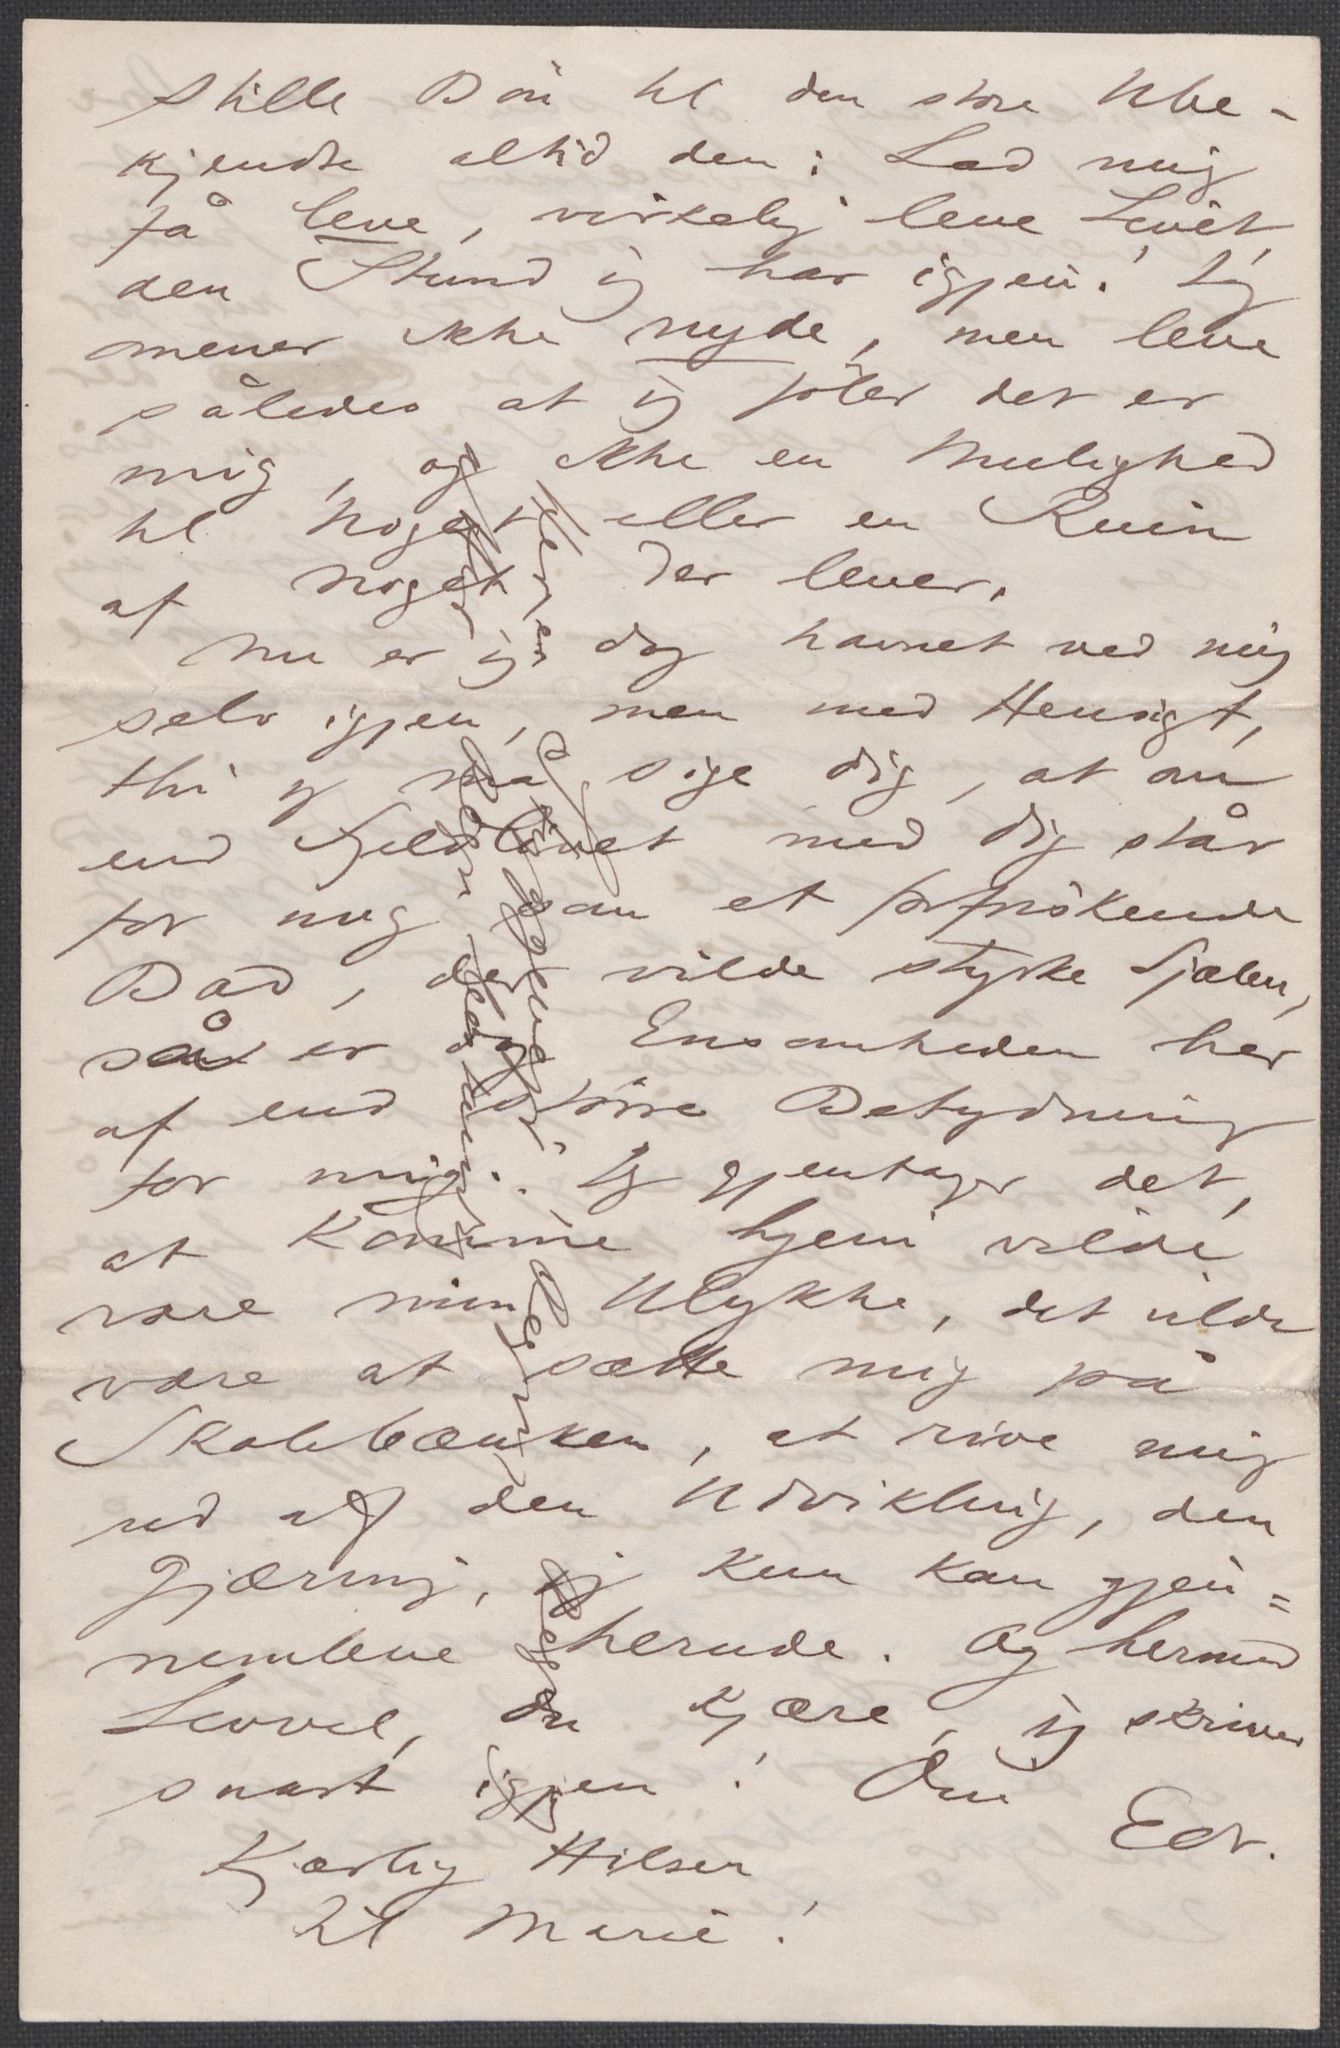 stille Bön til den store Ube-
kjendte altid den: Lad mig
få leve, virkelig leve Livet,
den Stund jeg har igjen! Jeg
mener ikke nyde, men leve
således at jeg föler det er
mig, og ikke en Mulighed
til noget eller en Ruin
af noget der lever.
Nu er jeg dog havnet ved mig
selv igjen, men med Hensigt,
thi jeg må sige dig, at om
end Fjeldlivet med dig står
for mig som et forfriskende
Bad, der vilde styrke Sjælen,
så er dog Ensomheden her
af end större Betydning
for mig. Jeg gjentager det,
at komme hjem vilde
være min Ulykke, det vilde
være at sætte mig på
Skolebænken, at rive mig
ud af den Udvikling, den
Gjæring, jeg kun kan gjen=
nemleve herude. Og hermed
Levvel, du kjære, jeg skriver
snart igjen! Din
Edv.
Kjærlig Hilsen
til Marie!
Her er